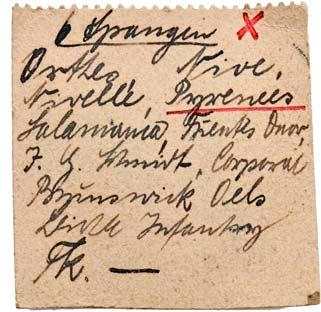 6 Spangen X
Orthes, Nive,
Nivelle, Pyrenees
Salamanca, Fuentes Onor,
F. G. Schmidt, Corporal
Brunswick Oels
Light Infantry
Fk. —